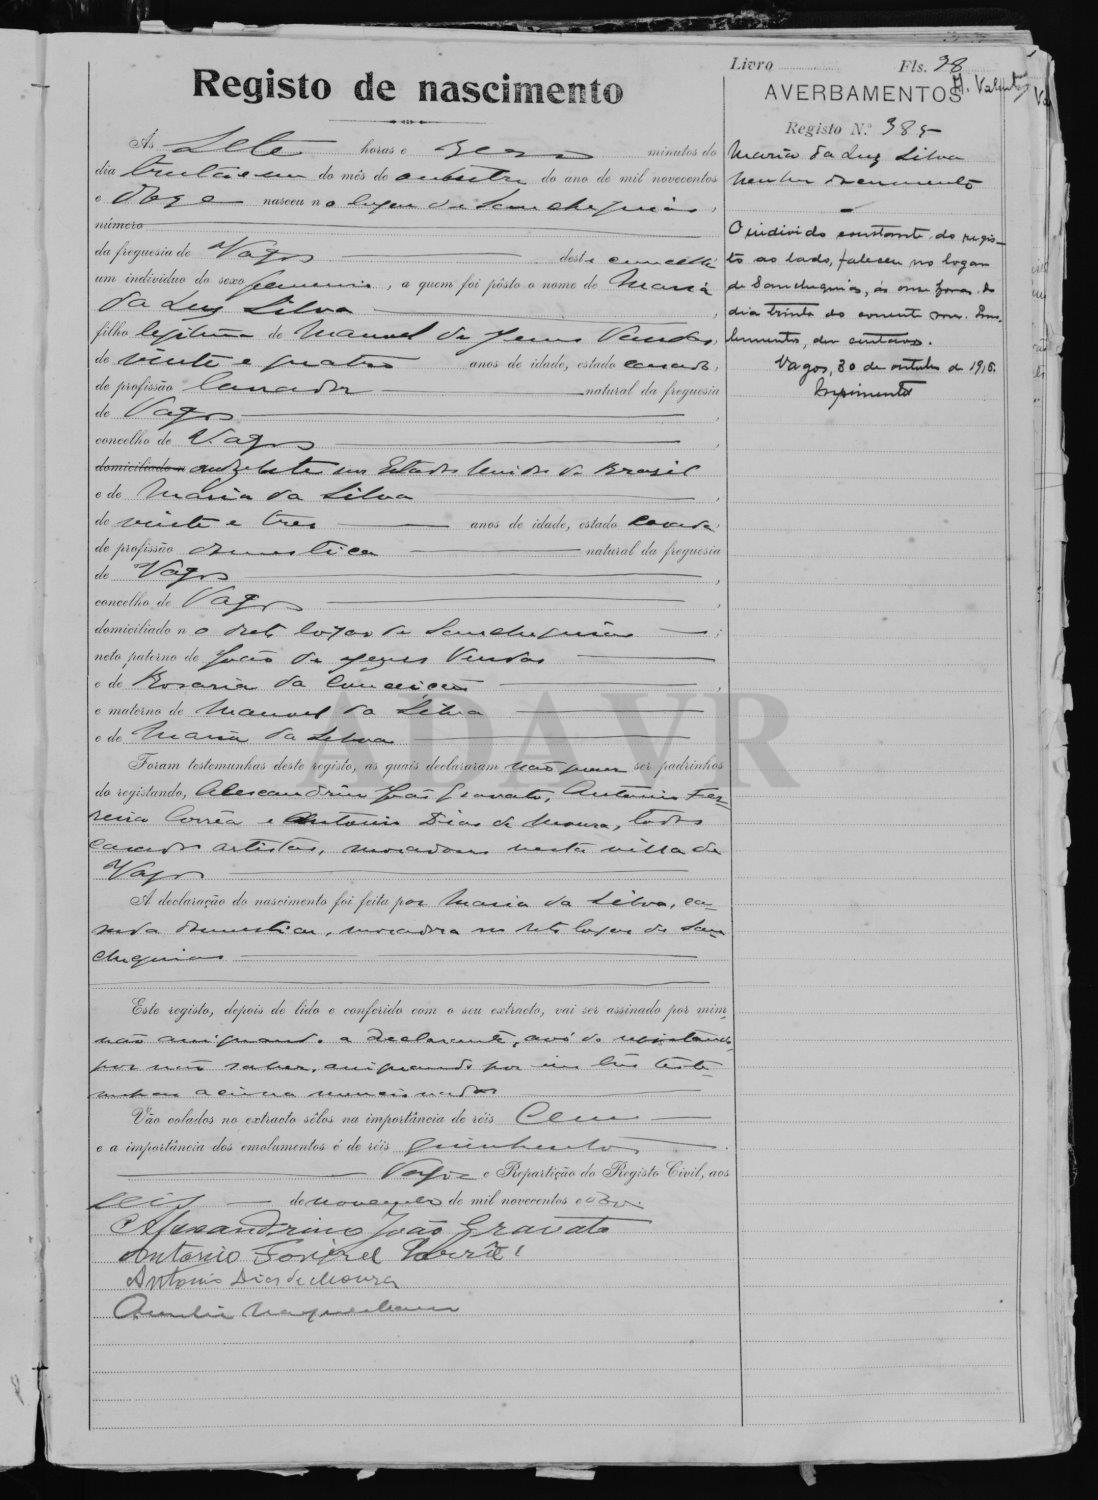 Livro Fls. 98
Registo de nascimento
AVERBAMENTOS
Registo N.º 385
Ás Sete horas e zero minutos do
dia trinta e um do mês de outubro do ano de mil novecentos
e doze nasceu no lugar de Sanchequias,
número
da freguesia de Vagos deste concelho
um individuo do sexo femenino, a quem foi pôsto o nome de Maria
da Luz Silva,
filho legitima de Manuel de Jesus Vendas,
de vinte e quatro anos de idade, estado casado,
de profissão lavrador natural da freguesia
de Vagos,
concelho de Vagos,
domiciliado n auzebte nos Estados Unidos do Brazil
e de Maria da Silva,
de vinte e tres anos de idade, estado casada
de profissão domestica natural da freguesia
de Vagos,
concelho de Vagos,
domiciliado n o dito logar de Sanchequias;
neto paterno de João de Jezus Vendas
e de Rosaria da Conceição,
e materno de Manuel da Silva
e de Maria da Silva
Foram testemunhas deste registo, as quais declararam não ser padrinhos
do registando, Alexandrino João Gravato, Antonio Fer-
reira Corrêa e Antonio Dias de Moura, todos
casados artistas, moradores nesta villa de
Vagos
A declaração do nascimento foi feita por Maria da Silva, ca-
sada domestica, moradora no dito logar de San-
chequias
Este registo, depois de lido e conferido com o seu extracto, vai ser assinado por mim
não assignando a declarante, avó do registando
por não saber, assignando por mim tres teste-
munhas acima mencionadas
Vão colados no extracto sêlos na importância de réis Cem
e a importância dos emolumentos é de réis quinhentos.
Vagos e Repartição do Registo Civil, aos
seis de novembro de mil novecentos e doze.
Alexandrino João Gravato
Antonio
Antonio Dias de Moura
Maria da Luz Silva
Nenhum documento
O individo constante do regis-
to ao lado, faleceu no logar
de Sanchequias, ás onze horas do
dia trinta do corrente mes. Emo-
lumentos, dez centavos.
Vagos, 30 de outubro de 1915.
ADAVR